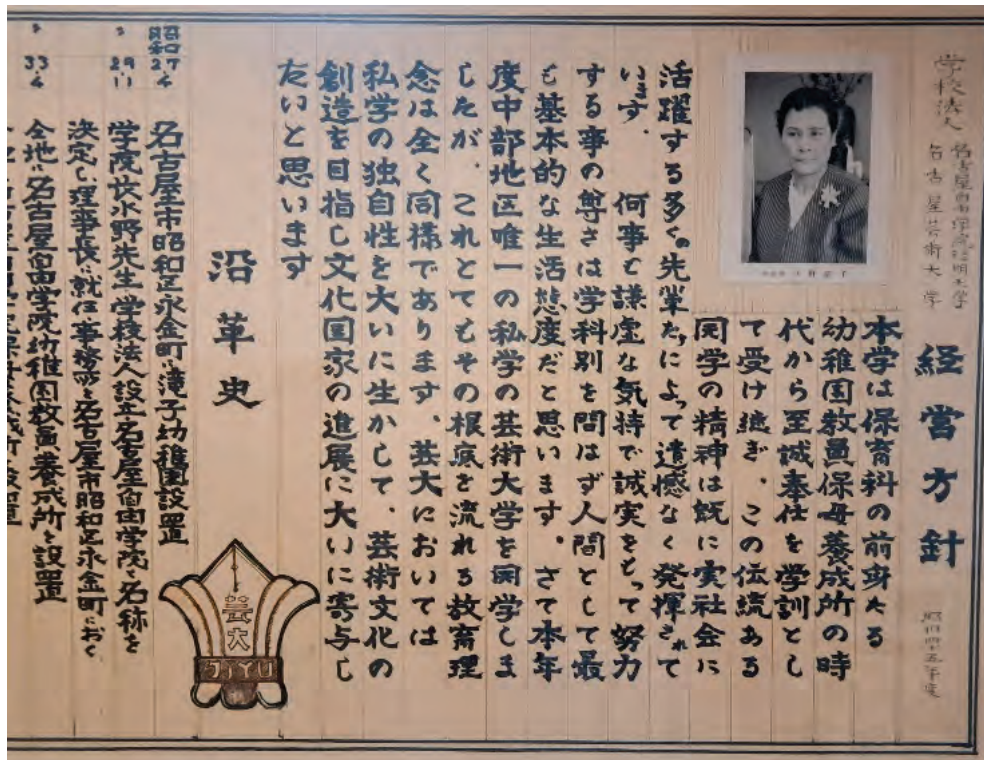 学校法人
名古屋自由学院短期大学
名古屋芸術大学
経営方針
昭和四十五年度
本学は保育科の前身たる
幼稚園教員保母養成所の時
代から至誠奉仕を学訓とし
て受け継ぎ、この伝統ある
開学の精神は既に実社会に
活躍する多くの先輩たちによって遺憾なく発揮されて
います。何事も謙虚な気持で誠実をもって努力
する事の尊さは学科別を問はず人間として最
も基本的な生活態度だと思います。さて本年
度中部地区唯一の私学の芸術大学を開学しま
したが、これとてもその根底を流れる教育理
念は全く同様であります。芸大においては
私学の独自性を大いに生かして、芸術文化の
創造を目指し文化国家の進展に大いに寄与し
たいと思います
沿革史
芸大
JIYU
昭和27 4 名古屋市昭和区永金町に滝子幼稚園設置
〃 29 11 学院長水野先生学校法人設立名古屋自由学院と名称を
決定し理事長に就任事務所を名古屋市昭和区永金町におく
〃 33 4 全地に名古屋自由学院幼稚園教員養成所を設置